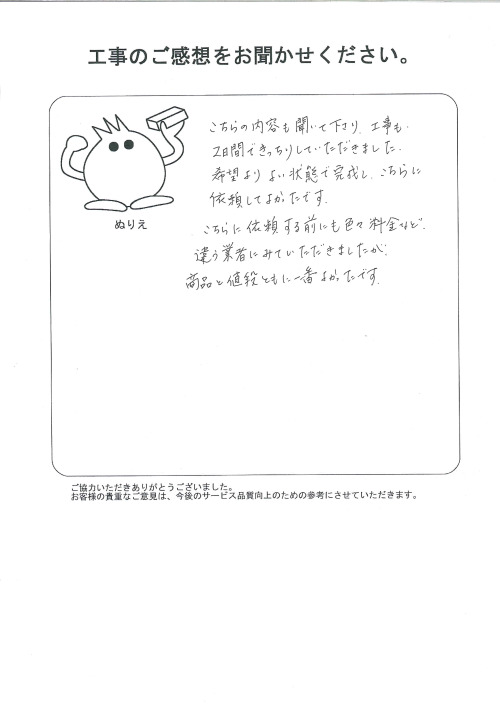 工事のご感想をお聞かせください。
こちらの内容も聞いて下さり、工事も、
2日間できっちりしていただきました。
希望よりよい状態で完成し、こちらに
依頼してよかたです。
ぬりえ
こちらに依頼する前にも色々料金など、
違う業者にみていただきましたが、
商品と値段ともに一番よかたです。
ご協力いただきありがとうございました。
お客様の貴重なご意見は、今後のサービス品質向上のための参考にさせていただきます。